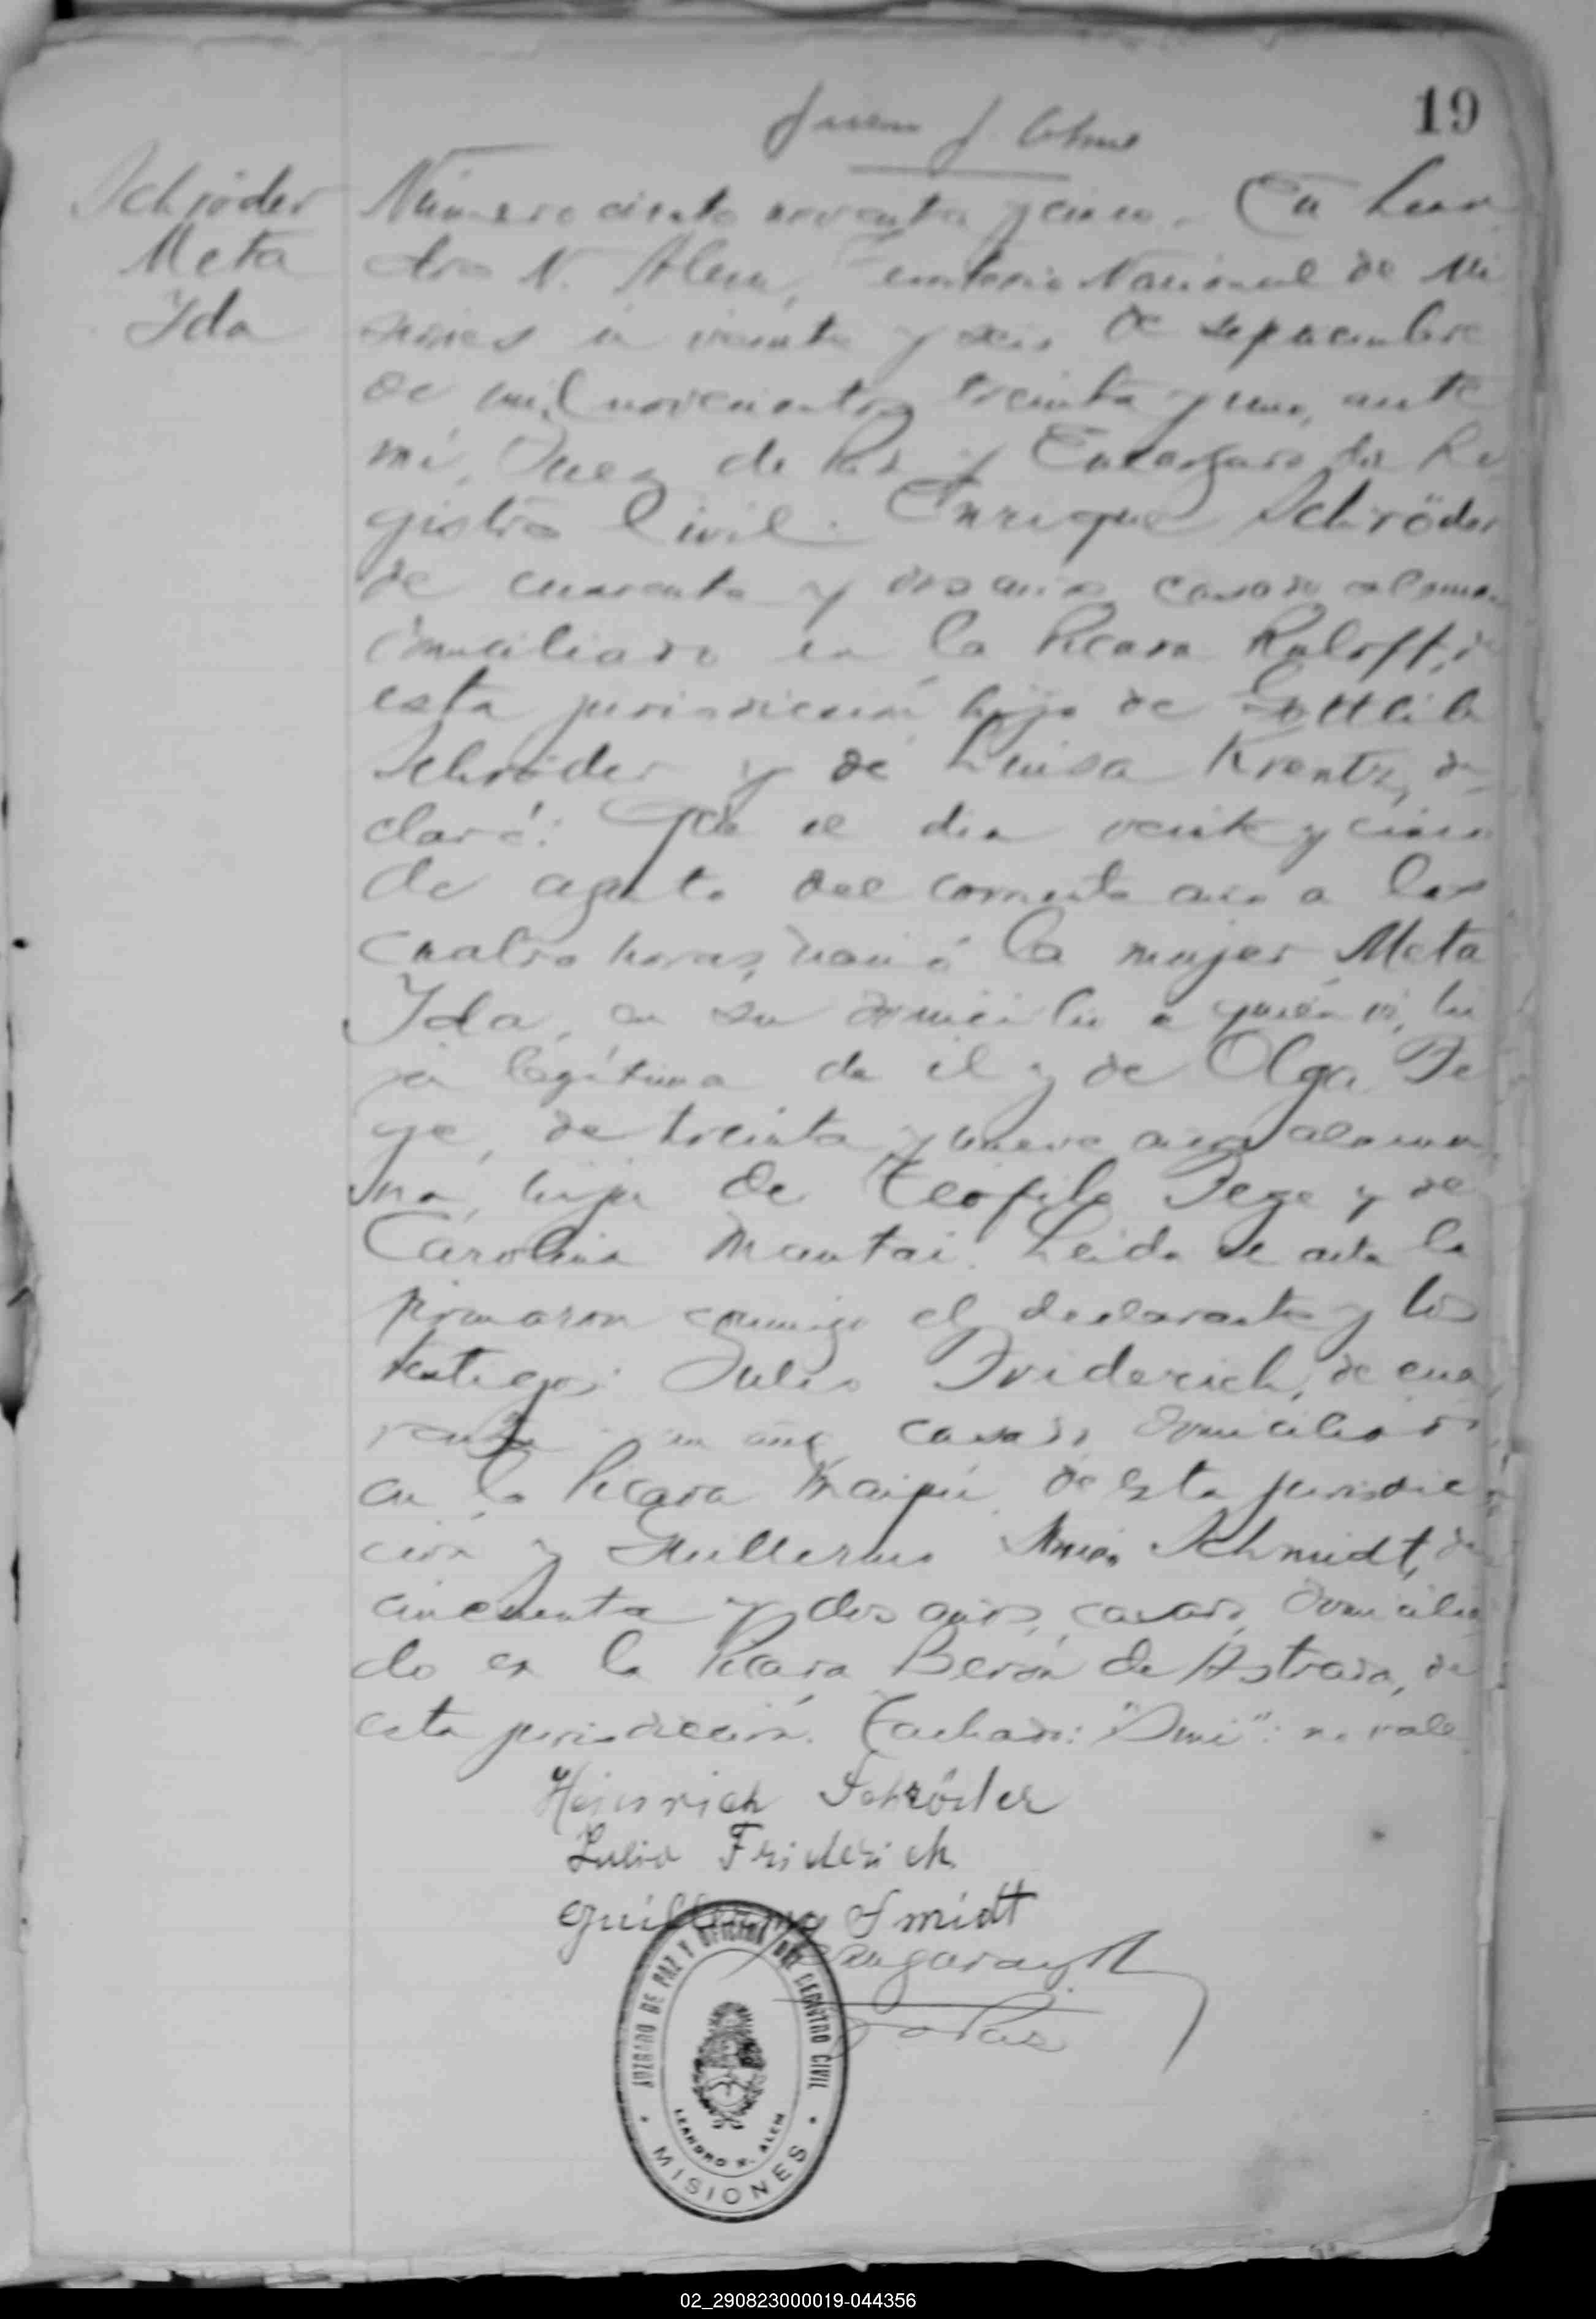 19
Schröder
Meta
Ida
Número ciento noventa y cinco. En Lean
dro N. Alem, Territorio Nacional de Mi
siones a veinte y seis de septiembre
de mil novecientos treinta y uno, ante
mí, Juez de Paz y Encargado del Re
gistro Civil: Enrique Schröder
de cuarenta y dos años casado aleman
domiciliado en la Picada Ruloff, de
esta jurisdicción hijo de Gottlieb
Schröder y de Luisa Krentz, de
claró: Que el dia veinte y cinco
de agosto del corriente año a las
cuatro horas, nació la mujer Meta
Ida, en su domicilio a quién ví, hi
ja legítima de él y de Olga Fe
ge, de treinta y nueve años alema
na, hija de Teofilo Fege y de
Carolina Mantai. Leida el acta la
firmaron conmigo el declarante y los
testigos: Julio Friderich, de cua
renta y un años casado domiciliado
en la Picada Maipú de esta jurisdic
ción y Guillermo Schmidt, de
cincuenta y dos años, casado, domicilia
do en la Picada Berón de Astrada, de
esta jurisdicción. Tachado: "Smi": no vale
Heinrich Schröder
Julio Friderich
Guillermo Smidt
JUZGADO DE PAZ Y OFICINA DEL REGISTRO CIVIL
LEANDRO N. ALEM
MISIONES
02_290823000019-044356